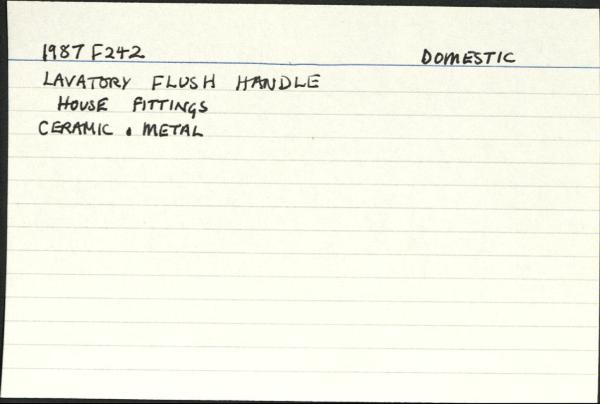 1987 F242 DOMESTIC
LAVATORY FLUSH HANDLE
HOUSE FITTINGS
CERAMIC . METAL